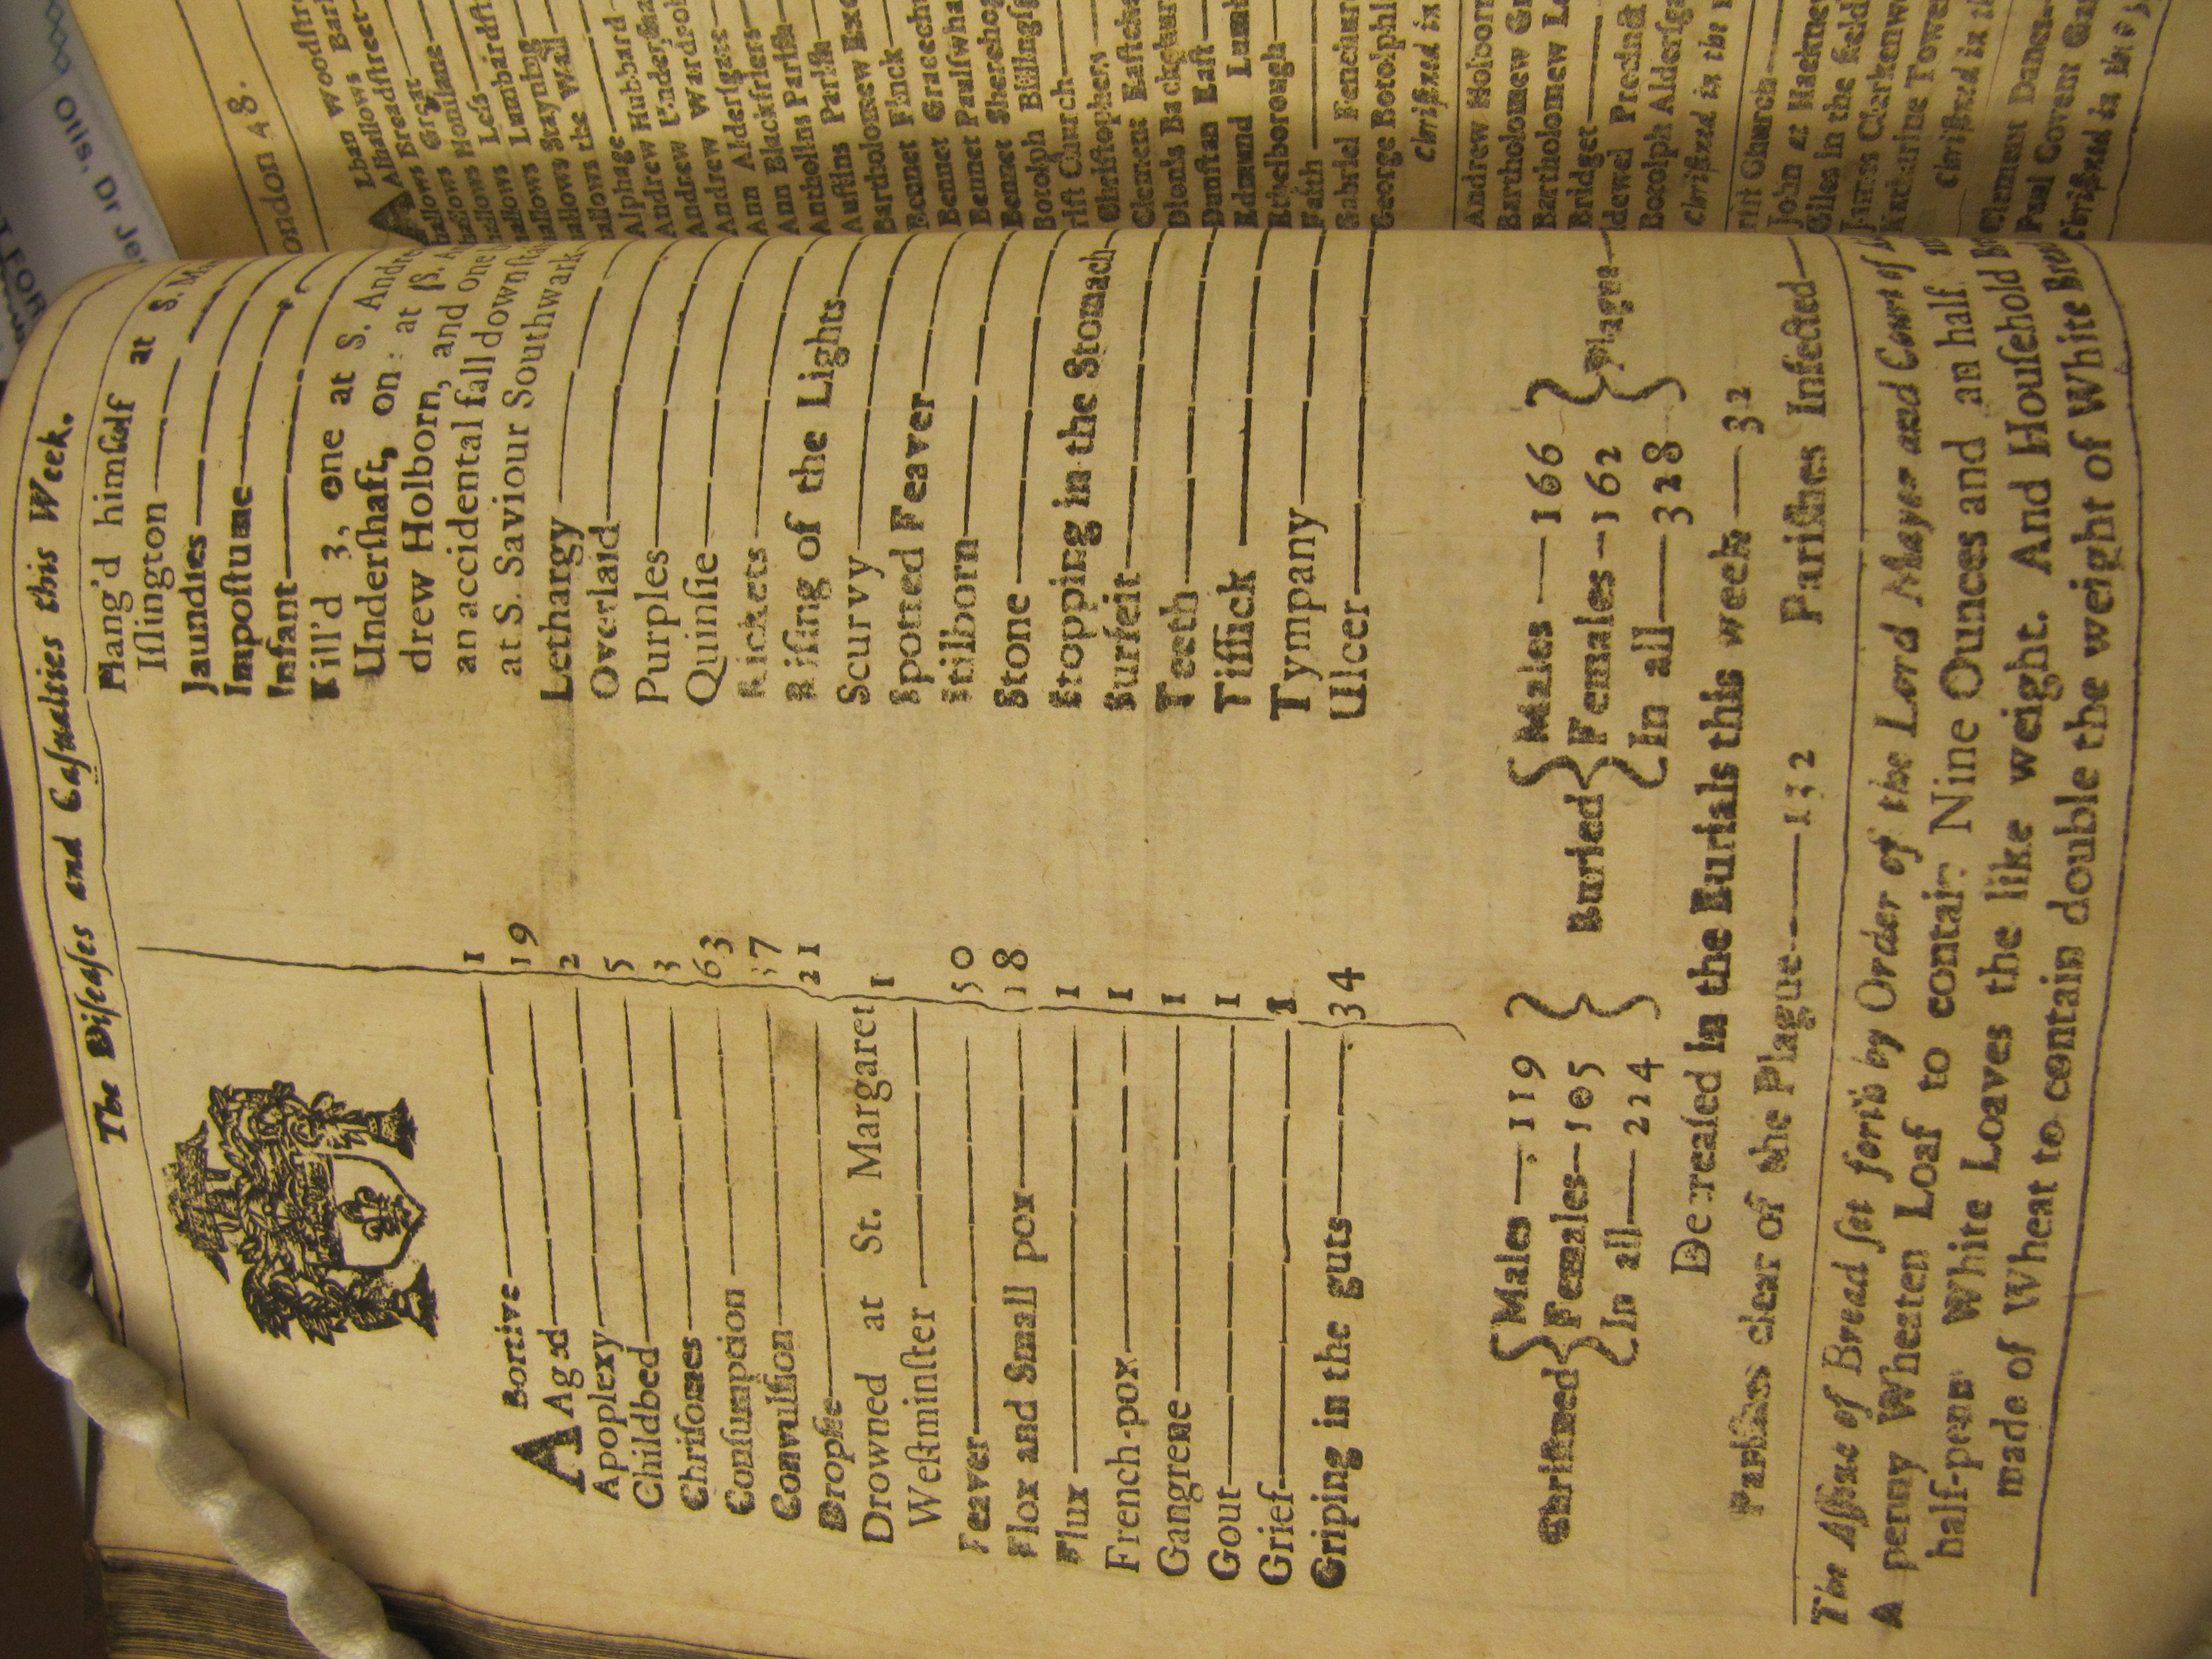 The Diseaſes and Caſualties this Week.
Abortive 1
Aged 19
Apoplexy 2
Childbed 5
Chriſomes 3
Conſumption 63
Convulſion 37
Dropſie 21
Drowned at St. Margaret
Weſtminſter 1
Feaver 50
Flox and Small pox 18
Flux 1
French-pox 1
Gangrene 1
Gout 1
Grief 1
Griping in the guts 34
Hang'd himſelf at S. Ma
Iſlington
Jaundies
Impoſtume
Infant
Kill'd 3, one at S. Andre
Underſhaft, on: at S. A
drew Holborn, and one
an accidental fall down ſta
at S. Saviour Southwark
Lethargy
Overlaid
Purples
Quinſie
Rickets
Riſing of the Lights
Scurvy
Spotted Feaver
Stilborn
Stone
Stopping in the Stomach
Surfeit
Teeth
Tiſſick
Tympany
Ulcer
Chriſtned Males 119
Females 105
In all 224
Buried Males 166
Females 162
In all 328
Plague
Decreaſed in the Burials this week 32
Pariſhes clear of the Plague 132 Pariſhes Infected
The Aſſize of Bread ſet forth by Order of the Lord Mayor and Court of
A penny Wheaten Loaf to contain Nine Ounces and an half
half-penny White Loaves the like weight. And Houſehold
made of Wheat to contain double the weight of White Brea
ondon 48.
Lban Woodſtre
Alhallows Bark
Alhallows Breadſtreet
hallows Great
hallows Honilane
hallows Leſs
hallows Lumbardſt
hallows Stayning
hallows the Wall
Alphage
Andrew Hubbard
Andrew Underſha
Andrew Wardrob
Ann Alderſgate
Ann Blackfriers
Antholins Pariſh
Auſtins Pariſh
Bartholomew Exc
Bennet Finck
Bennet Gracechu
Bennet Paulſwha
Bennet Sherehog
Botolph Billingſg
riſt Church
Chriſtophers
Clement Eaſtche
Dionis Backchur
Dunſtan Eaſt
Edmund Lumb
Ethelborough
Faith
Gabriel Fenchur
George Botolphl
Chriſtned in
Andrew Holborn
Bartholomew Gr
Bartholomew Le
Bridget
idewel Precinct
Botolph Alderſga
Chriſtned in the
riſt Church
John at Hackney
Giles in the field
James Clerkenw
Katharine Tower
Chriſtned in th
Clement Danes
Paul Covent Gar
Chriſtned in the
Otis, Dr Je
T FOR